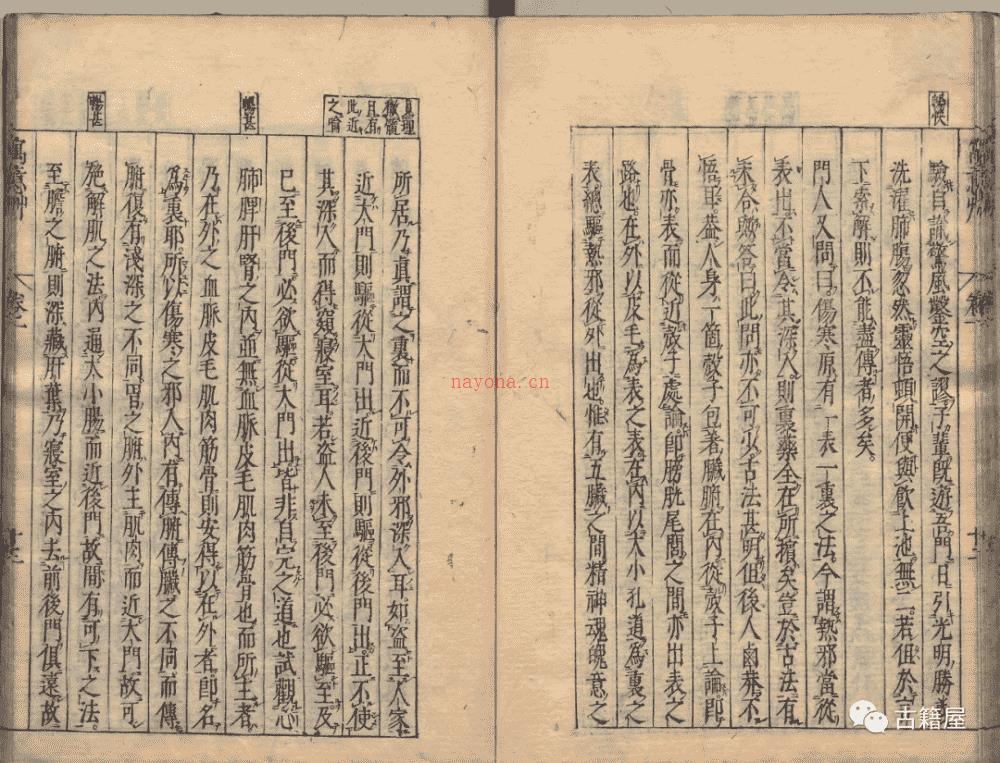 驗自訛驚風鑿空之謬子輩既遊吾門日引光明勝義
洗濯肺腸忽然靈悟頓開便與飲上池無二若但於言
下索解則不能盡傳者多矣
門人又問曰傷寒原有一表一裏之法今謂熱邪當從
表出不當令其深入則裏藥全在所擯矣豈於古法有
未合歟答曰此問亦不可少古法甚明但後人鹵莽不
悟耳葢人身一箇殼子包著臟腑在內從殼子上論即
骨亦表而從近殼子處論即膀胱尾閭之間亦出表之
路也在外以皮毛為表之表在內以大小孔道為裏之
表總驅熱邪從外出也惟有五臟之間精神魂魄意之
寓意草 卷一 十二
所居乃眞謂之裏而不可令外邪深入耳如盜至人家
近大門則驅從大門出近後門則驅從後門出正不使
其深入而得窺寢室耳若盜人未至後門必欲驅至及
已至後門必欲驅從大門出皆非自完之道也試觀心
肺脾肝腎之內並無血脈皮毛肌肉筋骨也而所主者
乃在外之血脈皮毛肌肉筋骨則安得以在外者即名
為裏耶所以傷寒之邪入內有傳腑傳臟之不同而傳
腑復有淺深之不同胃之腑外主肌肉而近大門故可
施解肌之法內通大小腸而近後門故間有可下之法
至膽之腑則深藏肝葉乃寢室之內去前後門俱遠故
暢甚
暢甚
寓意艸 卷一
nayona.cn
古籍屋